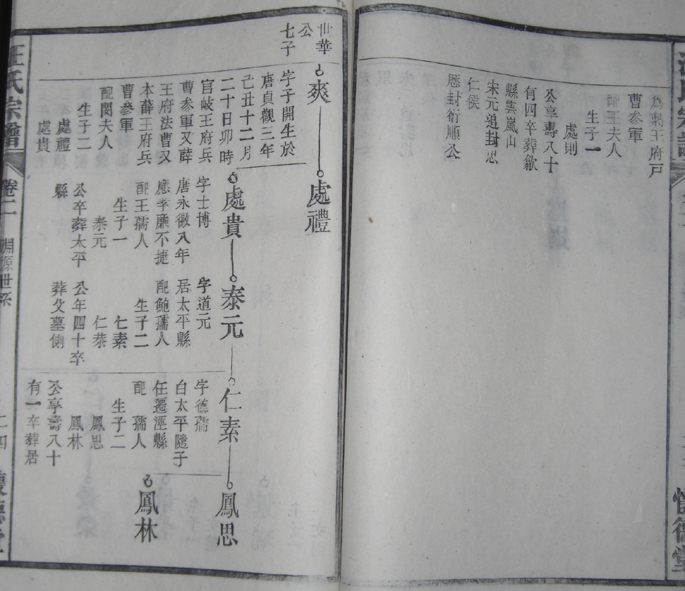 為親王府戶
曹參軍
配王夫人
生子一
處則
公享壽八十
有四卒葬歙
縣雲嵐山
宋元追封忠
仁侯
歷封衍順公
懷德堂
世華公
七子
爽
處禮
字子開生於
唐貞觀三年
己丑十二月
二十日卯時
官岐王府兵
曹參軍又薛
王府法曹又
本薛王府兵
曹參軍
配關夫人
生子二
處禮
處貴
處貴
泰元
仁素
鳳思
字士博
唐永徽八年
應孝廉不捷
配王孺人
生子一
泰元
公卒葬太平
縣
字道元
居太平縣
配鮑孺人
生子二
仁素
仁恭
公年四十卒
葬父墓側
字德孺
自太平隨子
任遷涇縣
配 孺人
生子二
鳳思
鳳林
公享壽八十
有一卒葬居
鳳林
汪氏宗譜
卷二
淵源世系
二四